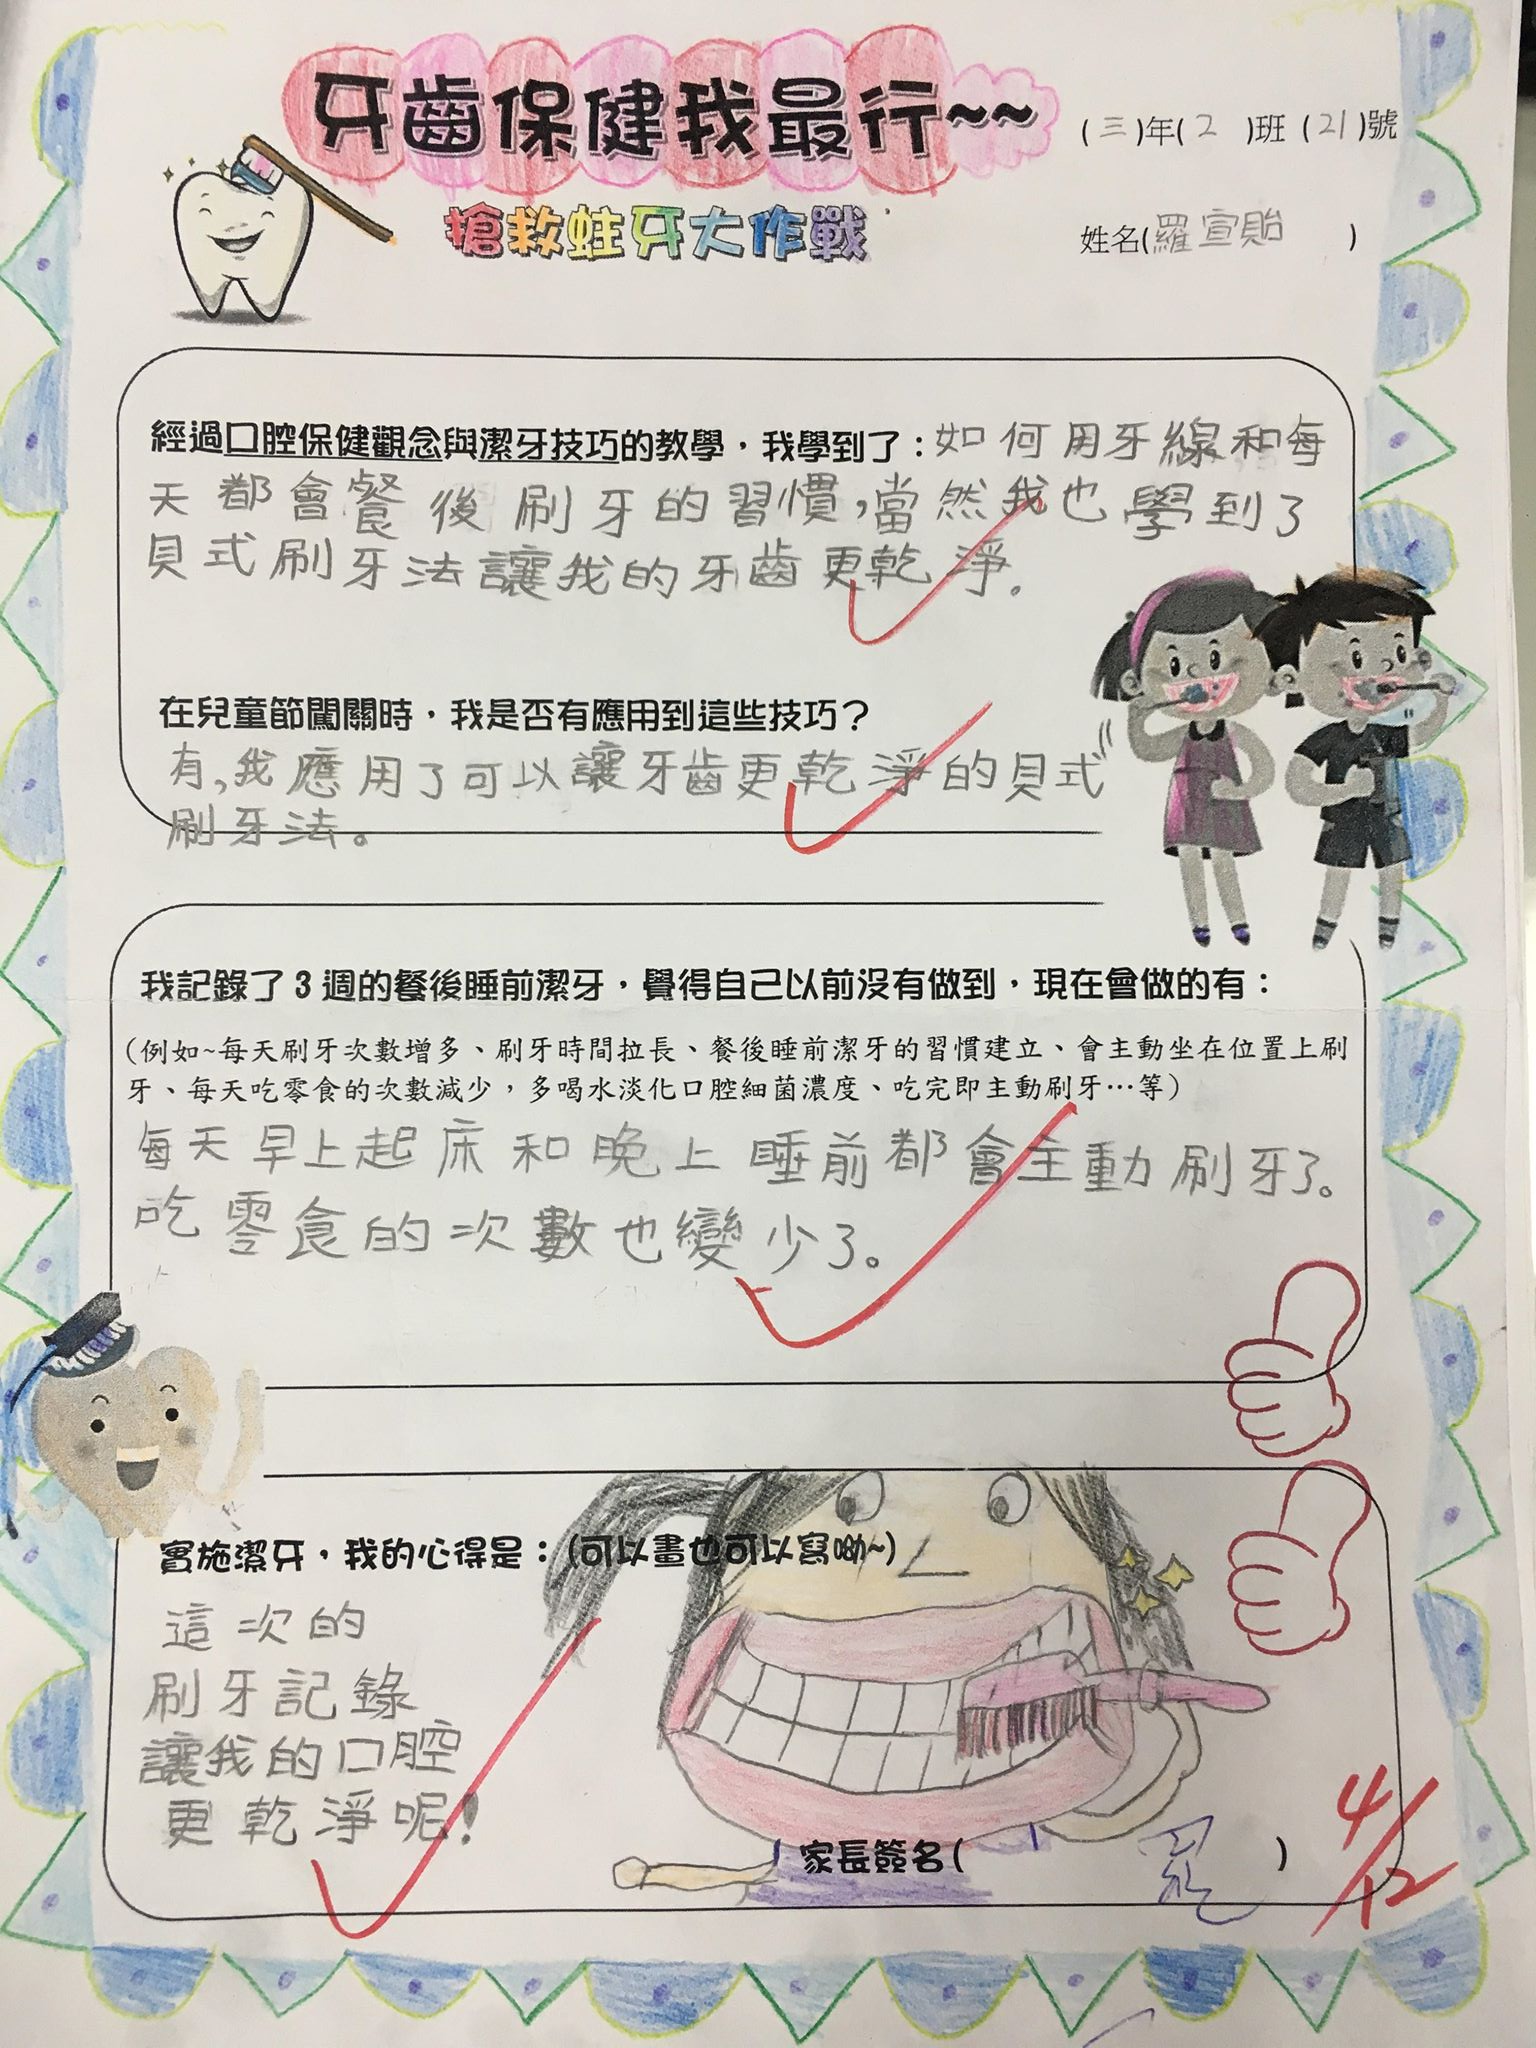 牙齒保健我最行~~
(三)年(2)班(21)號
搶救蛀牙大作戰
姓名(羅宣貽)
經過口腔保健觀念與潔牙技巧的教學，我學到了：如何用牙線和每
天都會餐後刷牙的習慣,當然我也學到了
貝式刷牙法讓我的牙齒更乾淨。
在兒童節闖關時，我是否有應用到這些技巧？
有,我應用了可以讓牙齒更乾淨的貝式
刷牙法。
我記錄了3週的餐後睡前潔牙，覺得自己以前沒有做到，現在會做的有：
(例如~每天刷牙次數增多、刷牙時間拉長、餐後睡前潔牙的習慣建立、會主動坐在位置上刷
牙、每天吃零食的次數減少，多喝水淡化口腔細菌濃度、吃完即主動刷牙…等)
每天早上起床和晚上睡前都會主動刷牙了。
吃零食的次數也變少了。
實施潔牙，我的心得是：(可以畫也可以寫呦~)
這次的
刷牙記錄
讓我的口腔
更乾淨呢!
家長簽名( )
4/12